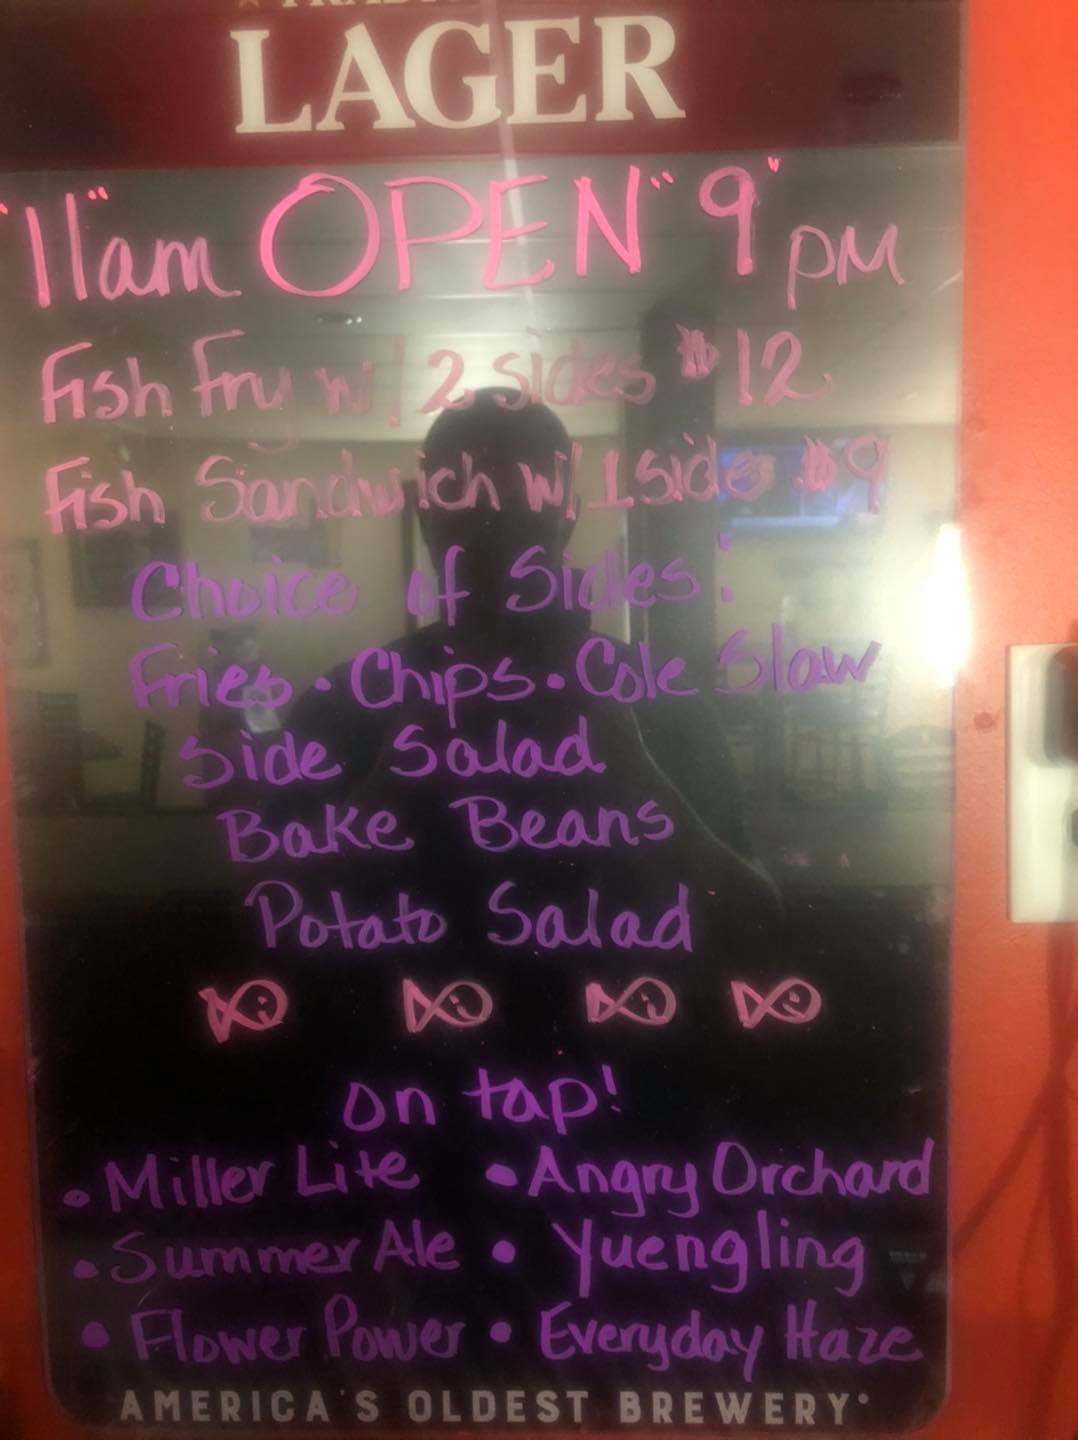 LAGER
"11"am OPEN "9" pm
Fish Fry w/ 2 sides $12
Fish Sandwich w/ 1 side $9
Choice of Sides:
Fries • Chips • Cole Slaw
Side Salad
Bake Beans
Potato Salad
on tap!
• Miller Lite • Angry Orchard
• Summer Ale • Yuengling
• Flower Power • Everyday Haze
AMERICA'S OLDEST BREWERY®